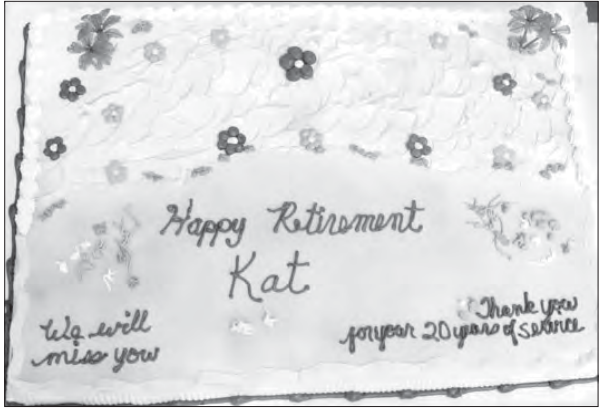 Happy Retirement
Kat
We will
miss you
Thank you
for your 20 years of service